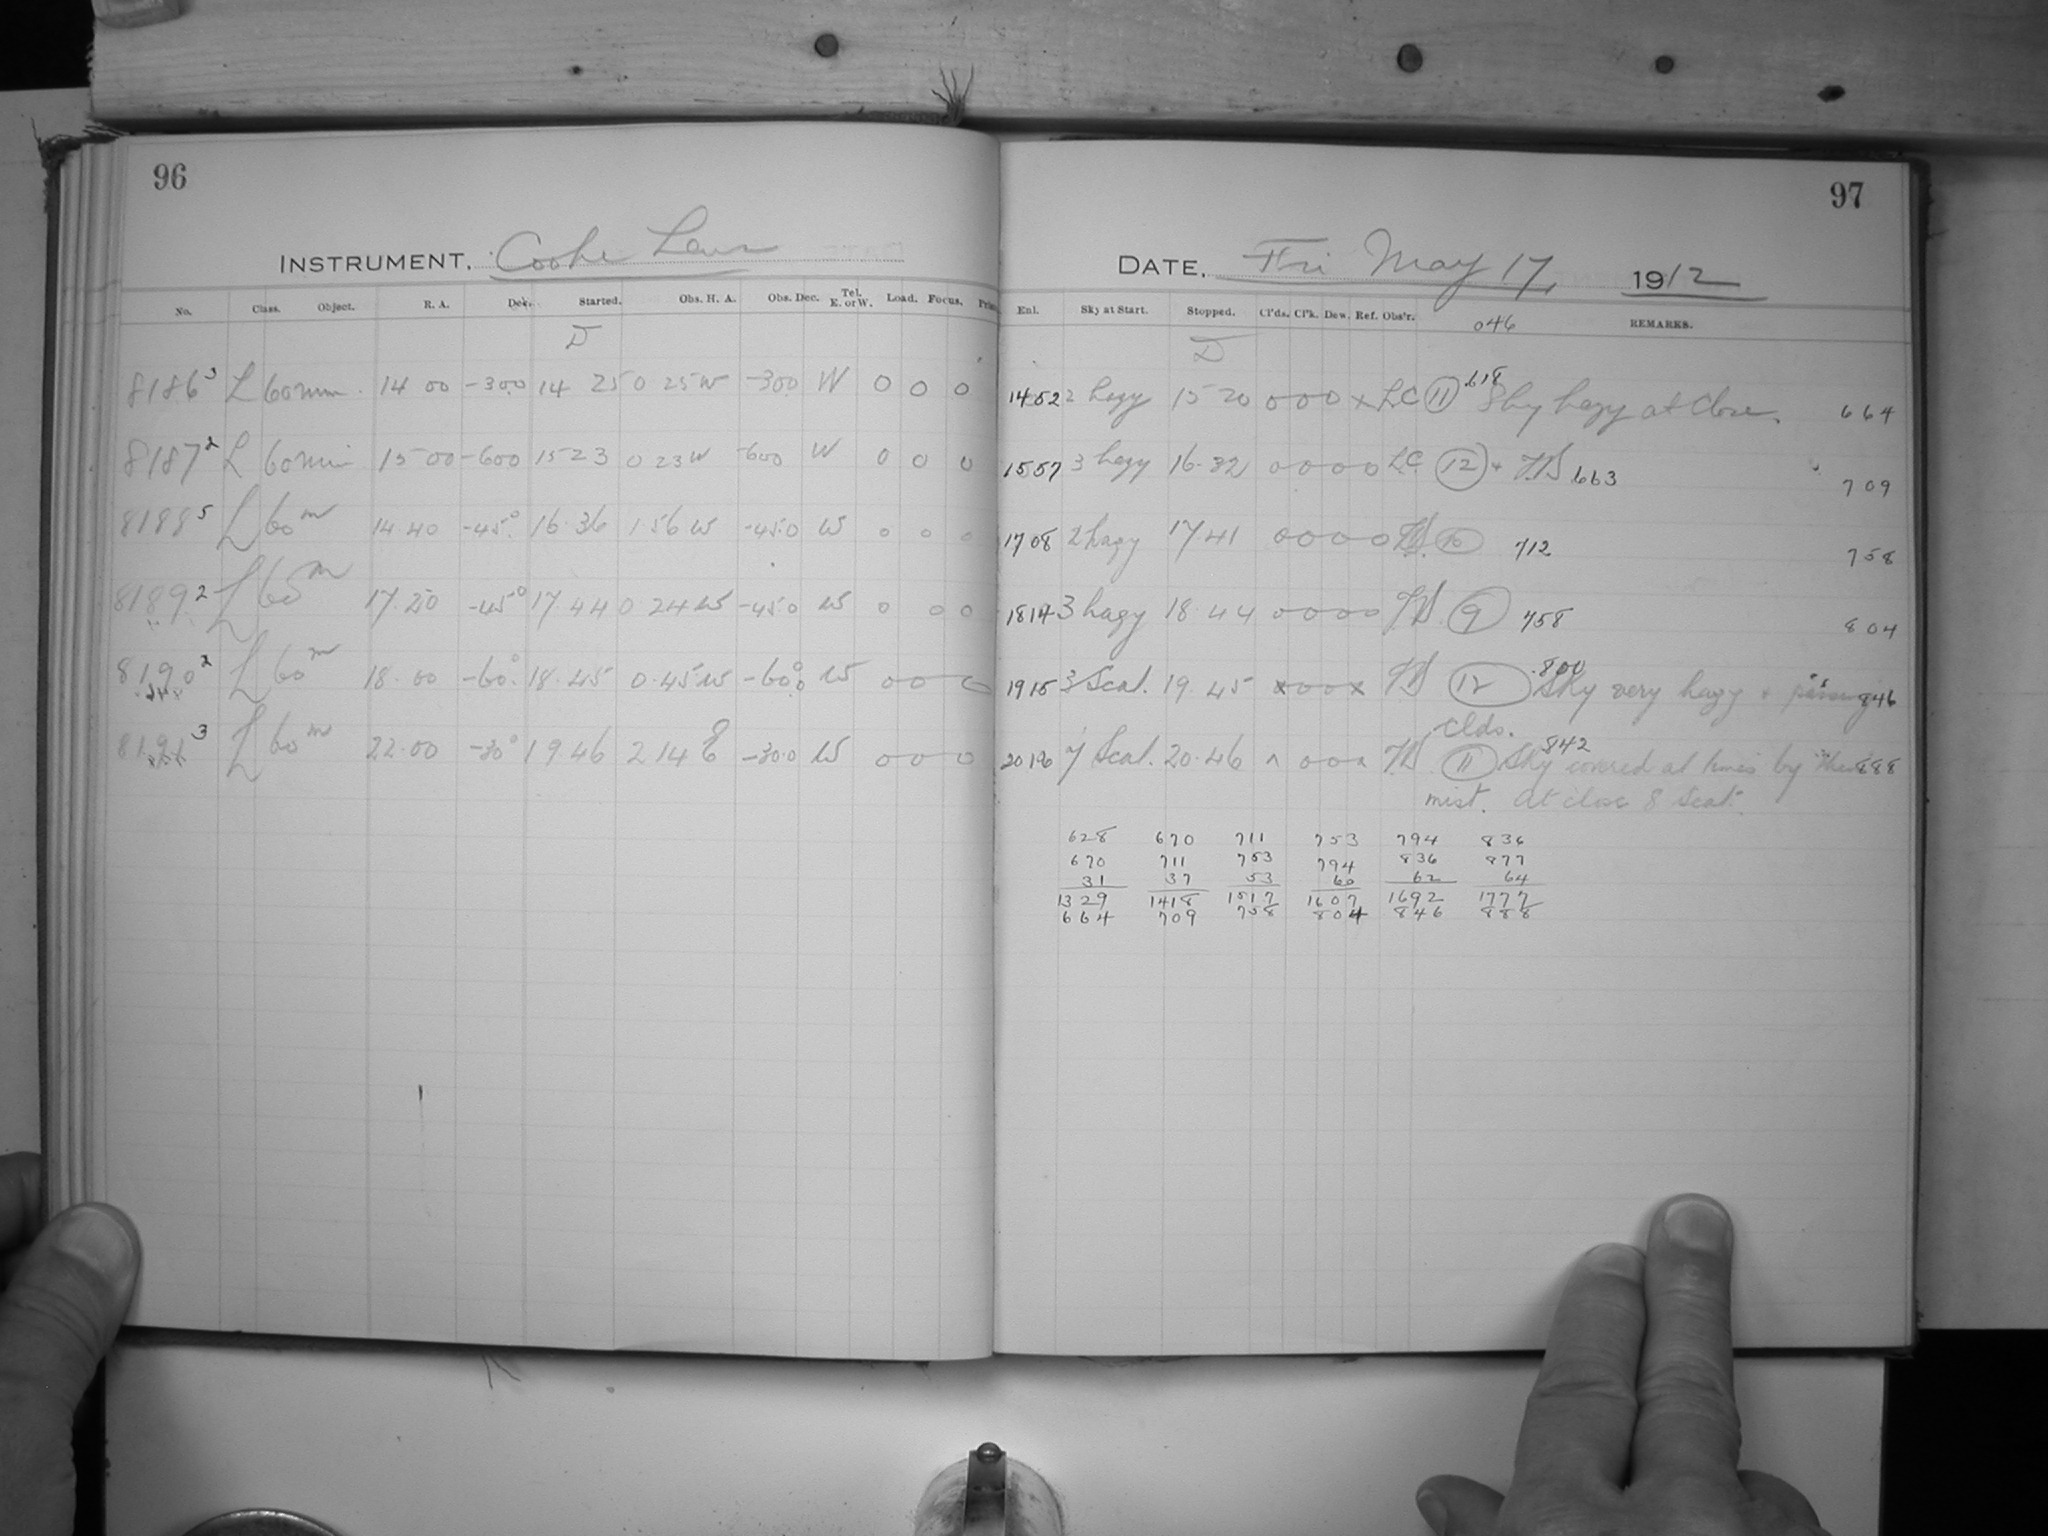 96
INSTRUMENT. Cooke Lens
No. Class. Object. R. A. Dec. Started. Obs. H. A. Obs. Dec. Tel. E. or W. Load. Focus.
D
8186 3 L 60 min. 14 00 -30.0 14 25 0 25 W -30.0 W 0 0 0
8187 2 L 60 min 15 00 -60.0 15 23 0 23 W -60.0 W 0 0 0
8188 5 L 60 m 14.40 -45.° 16.36 1.56 W -45.0 W 0 0 0
8189 2 L 60 m 17.20 -45° 17.44 0 24 W -45.0 W 0 0 0
8190 2 L 60 m 18.00 -60° 18.45 0.45 W -60° W 0 0 0
8191 3 L 60 m 22.00 -30° 19.46 2 14 E -30.0 W 0 0 0
97
DATE. Fri May 17, 1912
Enl. Sky at Start. Stopped. Cl'ds. Cl'k. Dew. Ref. Obs'r. 046 REMARKS.
D
1452 2 hazy 15 20 0 0 0 x LC 11 .618 Sky hazy at close. 664
1557 3 hazy 16.32 0 0 0 0 LC 12 + 663 709
1708 2 hazy 17 41 0 0 0 0 10 712 758
1814 3 hazy 18.44 0 0 0 0 9 758 804
1915 3 Scat. 19.45 x 0 0 x 12 .800 Sky very hazy + passing 846
clds.
2016 7 Scat. 20.46 0 0 x 11 842 Sky covered at times by 888
mist. At close 8 Scat.
628 670 711 753 794 836
670 711 753 794 836 877
31 37 53 60 62 64
1329 1418 1517 1607 1692 1777
664 709 758 804 846 888